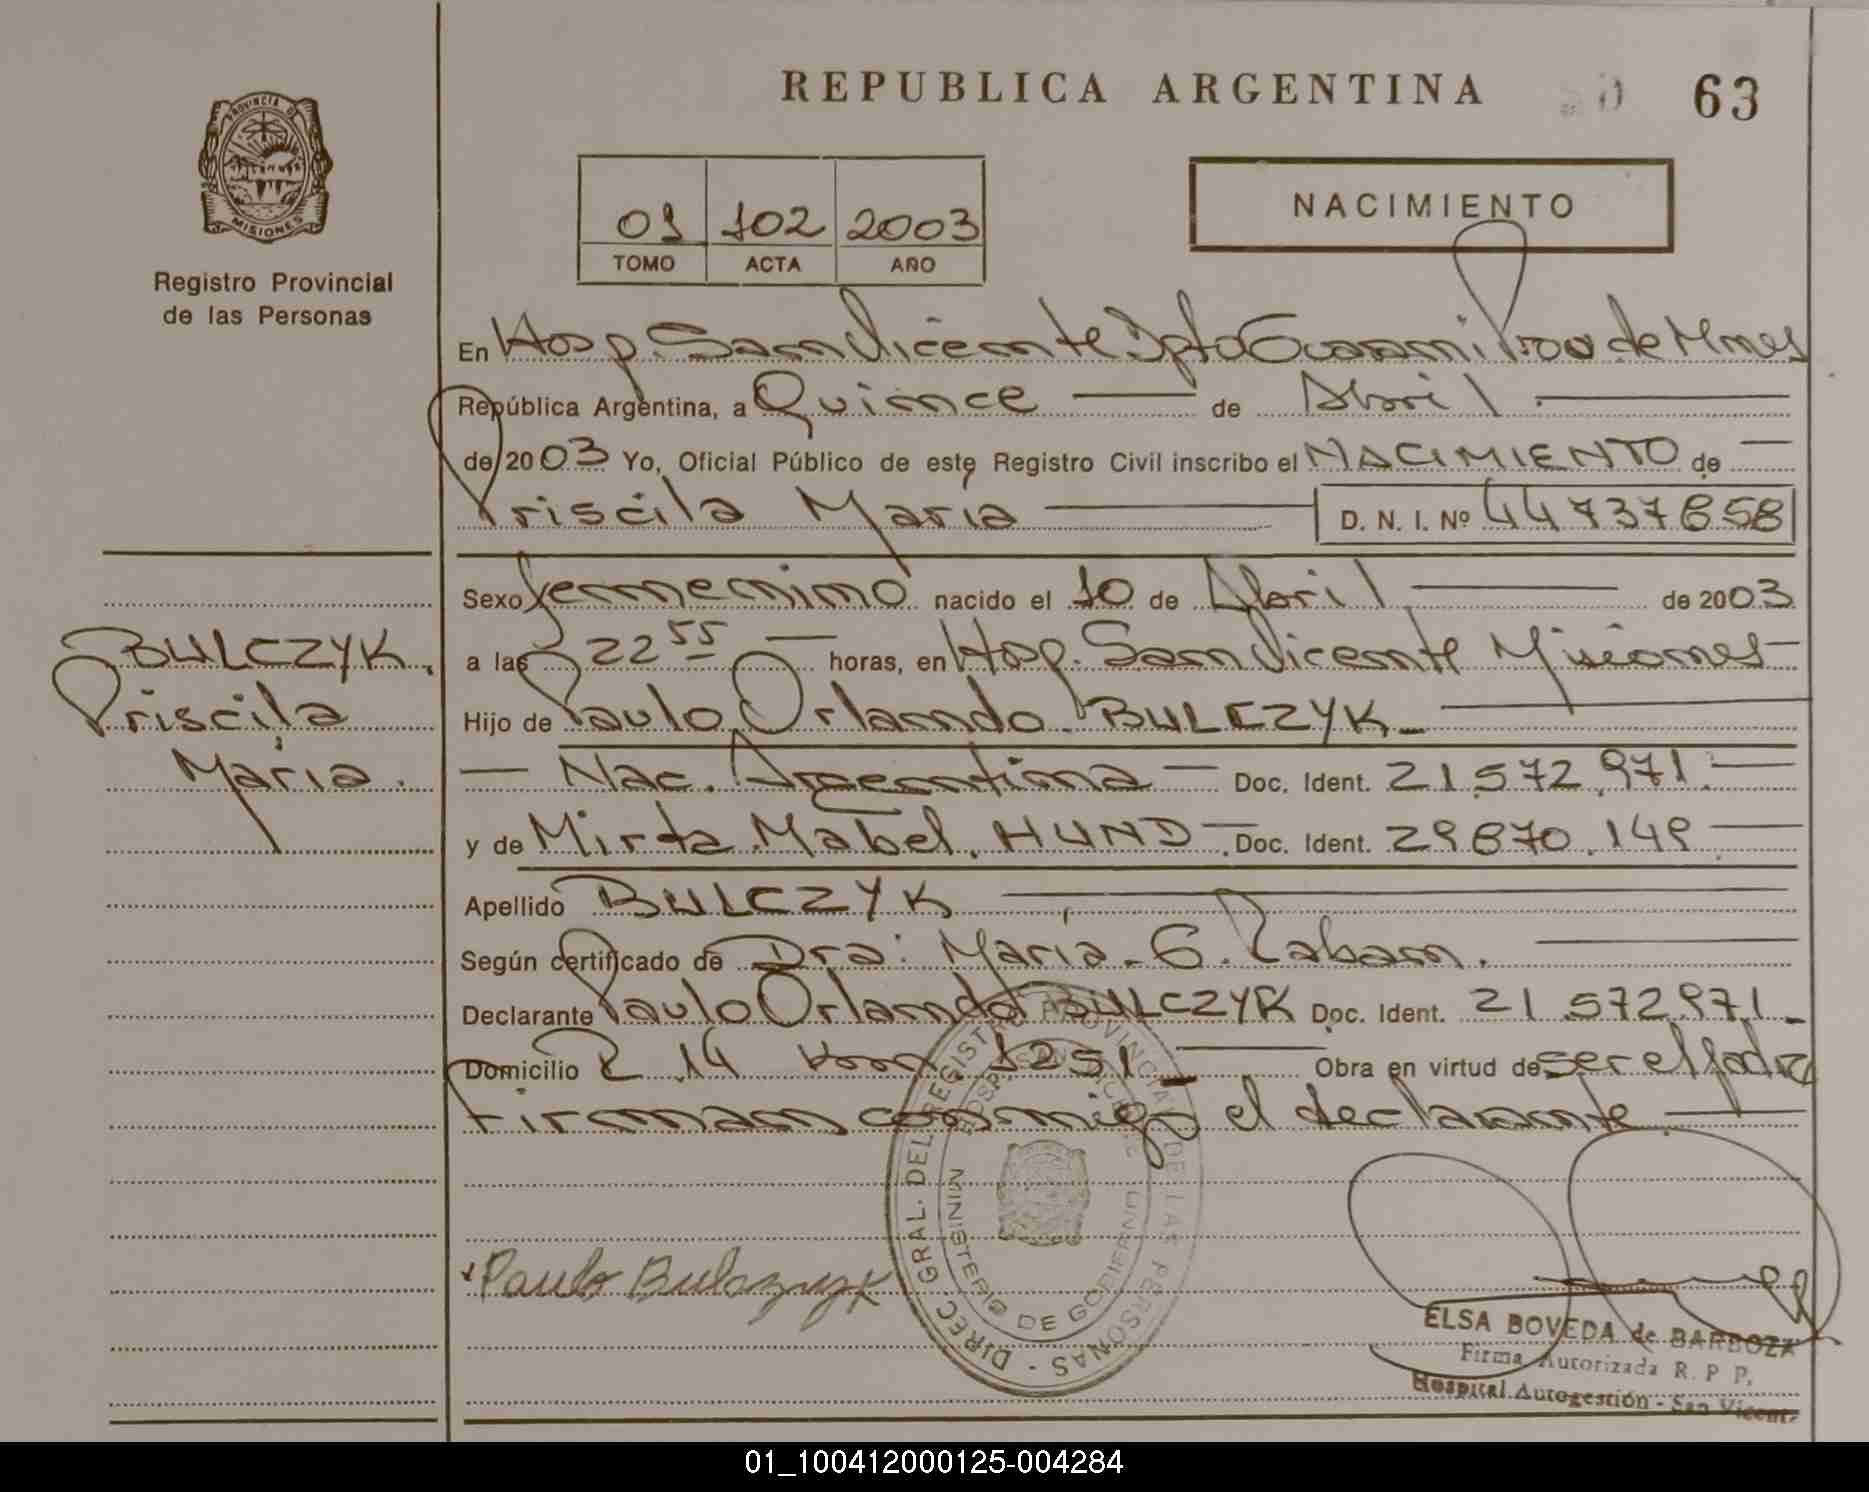 REPUBLICA ARGENTINA
63
PROVINCIA DE
MISIONES
Registro Provincial
de las Personas
01 102 2003
TOMO ACTA AÑO
NACIMIENTO
En Hosp. San Vicente Dpto Guarani Prov de Mnes
República Argentina, a Quince de Abril
de 2003 Yo, Oficial Público de este Registro Civil inscribo el NACIMIENTO de
Priscila Maria D. N. I. Nº 44737858
Sexo femenino nacido el 10 de Abril de 2003
a las 22 55 horas, en Hosp. San Vicente Misiones
Hijo de Paulo Orlando BULCZYK
Nac. Argentina Doc. Ident. 21.572.971
y de Mirta Mabel HUND Doc. Ident. 29870.149
Apellido BULCZYK
Según certificado de Dra: Maria E. Rabam.
Declarante Paulo Orlando BULCZYK Doc. Ident. 21.572.971
Domicilio R 14 km 1251 Obra en virtud de ser el padre
Firman conmigo el declarante
BULCZYK,
Priscila
Maria.
DIREC. GRAL. DEL REGISTRO PROVINCIAL DE LAS PERSONAS
HOSP. SAN VICENTE
MINISTERIO DE GOBIERNO
Paulo Bulczyk
ELSA BOVEDA de BARBOZA
Firma Autorizada R. P. P.
Hospital Autogestión - San Vicente
01_100412000125-004284